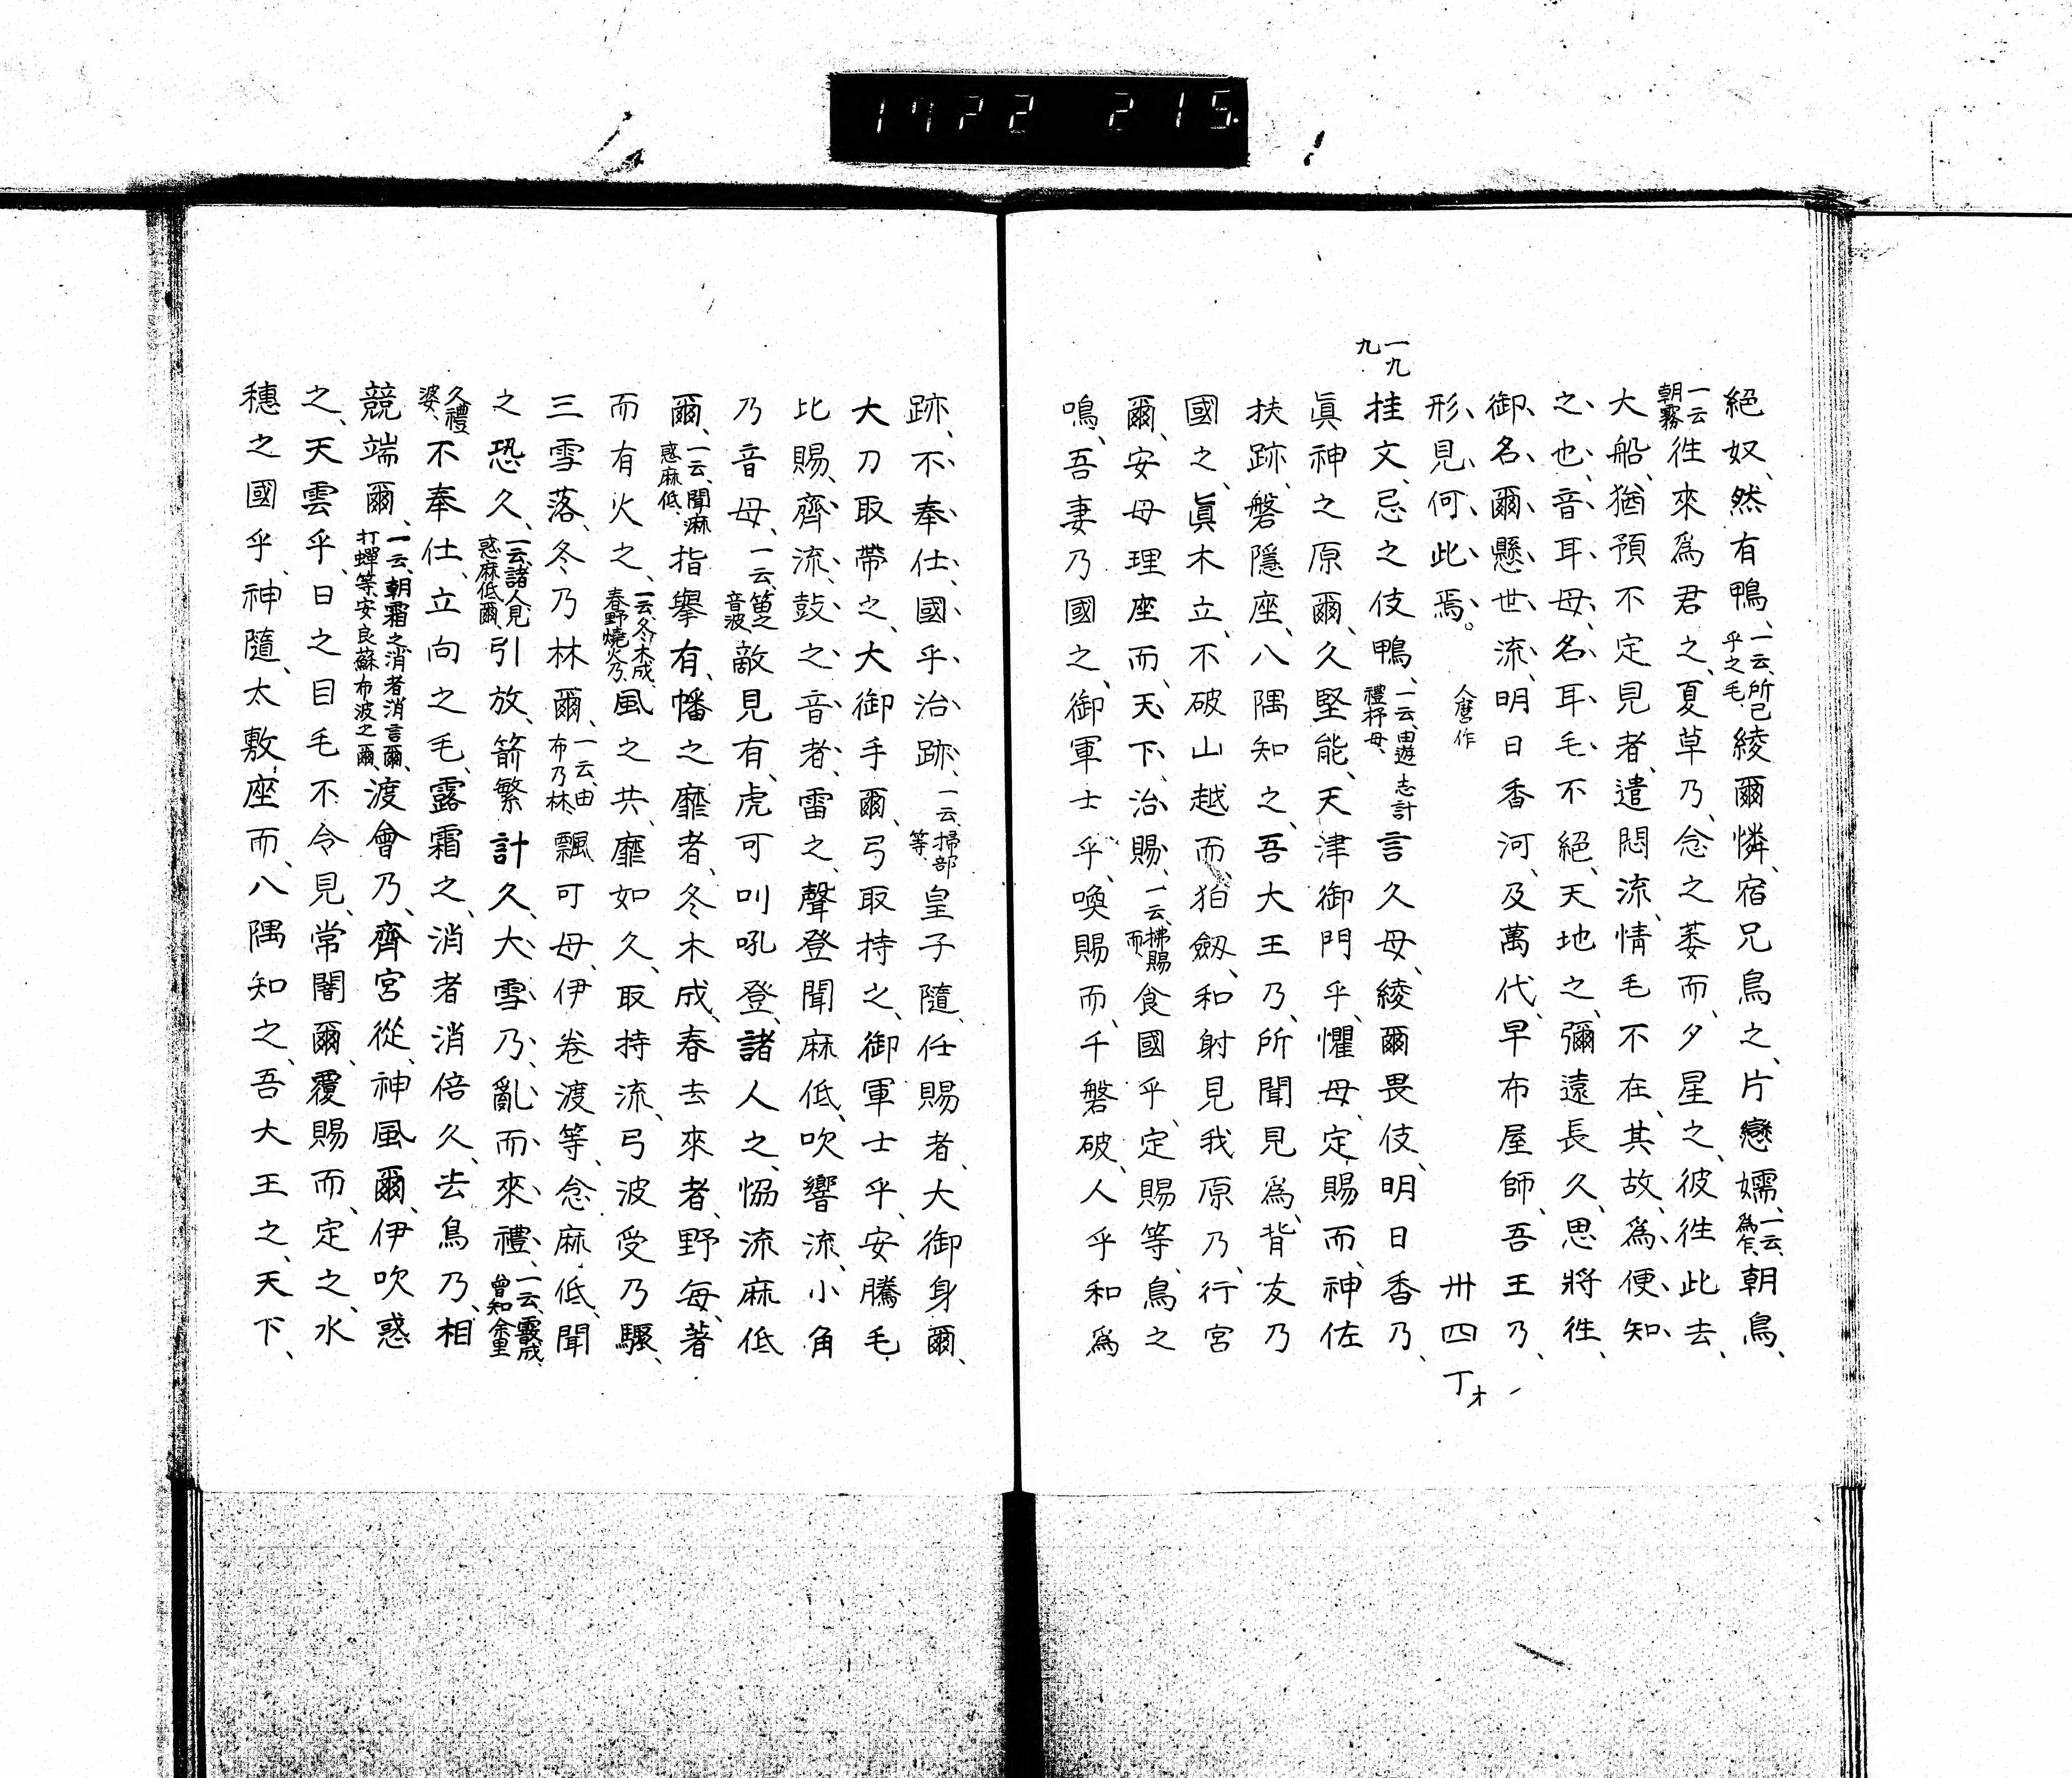 1722 215
絕奴、然有鴨、一云、所己乎之毛、綾爾憐、宿兄鳥之、片戀嬬、一云、爲乍、朝鳥、
一云朝霧往來爲君之、夏草乃、念之萎而、夕星之、彼往此去、
大船、猶預不定見者、遣悶流、情毛不在、其故、爲便知
之也、音耳母、名耳毛不絕、天地之、彌遠長久、思將往、
御名爾懸世流、明日香河、及萬代、早布屋師、吾王乃、
形見何此焉。人麿作 卅四丁オ
一九九
挂文、忌之伎鴨、一云、由遊志計禮抒母、言久母、綾爾畏伎、明日香乃、
眞神之原爾、久堅能、天津御門乎、懼母、定賜而、神佐
扶跡、磐隱座、八隅知之、吾大王乃、所聞見爲、背友乃
國之、眞木立、不破山越而、狛劔、和射見我原乃、行宮
爾、安母理座而、天下、治賜、一云、拂賜而、食國乎、定賜等、鳥之
鳴、吾妻乃國之、御軍士乎、喚賜而、千磐破、人乎和爲
跡、不奉仕、國乎治跡、一云、掃部等、皇子隨、任賜者、大御身爾、
大刀取帶之、大御手爾、弓取持之、御軍士乎、安騰毛
比賜、齊流、鼓之音者、雷之、聲登聞麻低、吹響流、小角
乃音母、一云、笛之音波、敵見有、虎可叫吼登、諸人之、恊流麻低
爾、一云、聞麻惑麻低、指擧有、幡之靡者、冬木成、春去來者、野每、著
而有火之、一云、冬木成、春野燒火乃、風之共、靡如久、取持流、弓波受乃驟、
三雪落、冬乃林爾、一云、由布乃林、飄可母、伊卷渡等、念麻低、聞
之恐久、一云、諸人見惑麻低爾、引放、箭繁計久、大雪乃、亂而來禮、一云、霰成、曾知余里
久禮婆、不奉仕、立向之毛、露霜之、消者消倍久、去鳥乃、相
競端爾、一云、朝霜之、消者消言爾、打蟬等、安良蘇布波之爾、渡會乃、齊宮從、神風爾、伊吹惑
之、天雲乎、日之目毛不令見、常闇爾、覆賜而、定之、水
穗之國乎、神隨、太敷座而、八隅知之、吾大王之、天下、